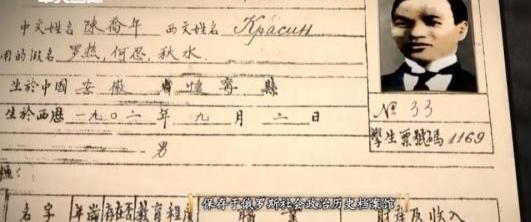 中文姓名 陳喬年 西文姓名 Красин
用的姓名 罗热,何恩,秋水
生於中國 安徽 省 懷寧 縣
生於西曆 一九〇二 年 九 月 二 日
№ 33
學生票號碼 1169
男
保存于俄罗斯社会政治历史档案馆
名字 年歲 存在否 教育程度 職業